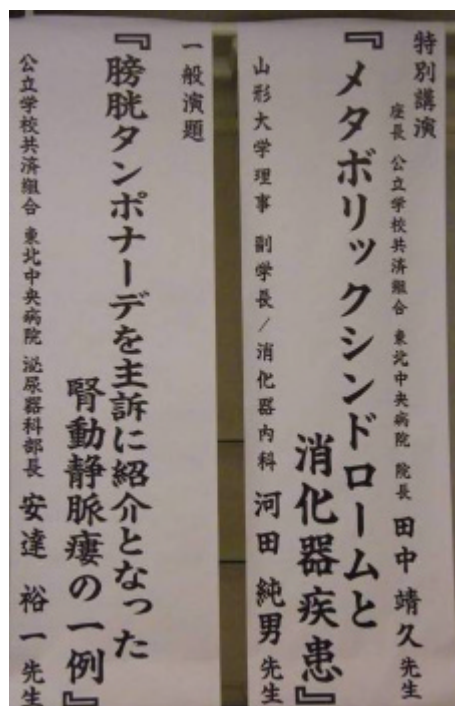 特別講演
座長 公立学校共済組合 東北中央病院 院長 田中 靖久 先生
『メタボリックシンドロームと
消化器疾患』
山形大学理事 副学長/消化器内科 河田 純男 先生
一般演題
『膀胱タンポナーデを主訴に紹介となった
腎動静脈瘻の一例』
公立学校共済組合 東北中央病院 泌尿器科部長 安達 裕一 先生